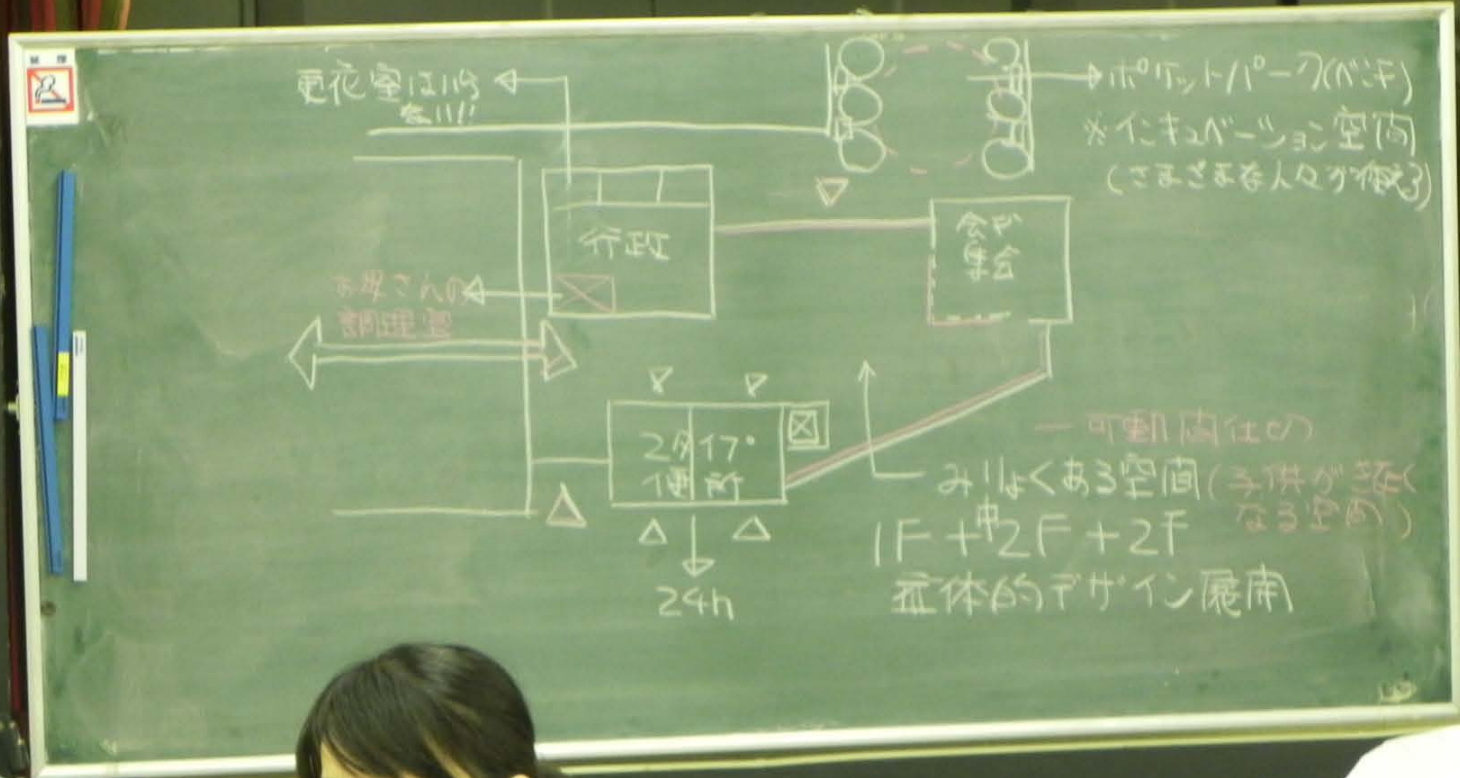 更衣室はいら
ない!!
ポケットパーク(ベンチ)
※インキュベーション空間
(さまざまな人々が使える)
行政
会や
集会
お母さんの
調理室
2タイプ
便所
24h
可動間仕切
みりょくある空間(子供が
なる空間)
1F+中2F+2F
立体的デザイン展開